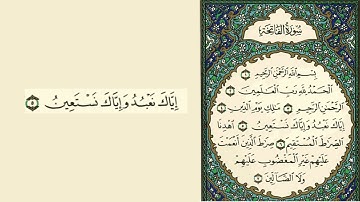 إِيَّاكَ نَعْبُدُ وَإِيَّاكَ نَسْتَعِينُ ۝٥
سُورَةُ الْفَاتِحَةِ
بِسْمِ اللَّهِ الرَّحْمَٰنِ الرَّحِيمِ ۝١
الْحَمْدُ لِلَّهِ رَبِّ الْعَالَمِينَ ۝٢
الرَّحْمَٰنِ الرَّحِيمِ ۝٣ مَالِكِ يَوْمِ الدِّينِ ۝٤
إِيَّاكَ نَعْبُدُ وَإِيَّاكَ نَسْتَعِينُ ۝٥ اهْدِنَا
الصِّرَاطَ الْمُسْتَقِيمَ ۝٦ صِرَاطَ الَّذِينَ أَنْعَمْتَ
عَلَيْهِمْ غَيْرِ الْمَغْضُوبِ عَلَيْهِمْ
وَلَا الضَّالِّينَ ۝٧